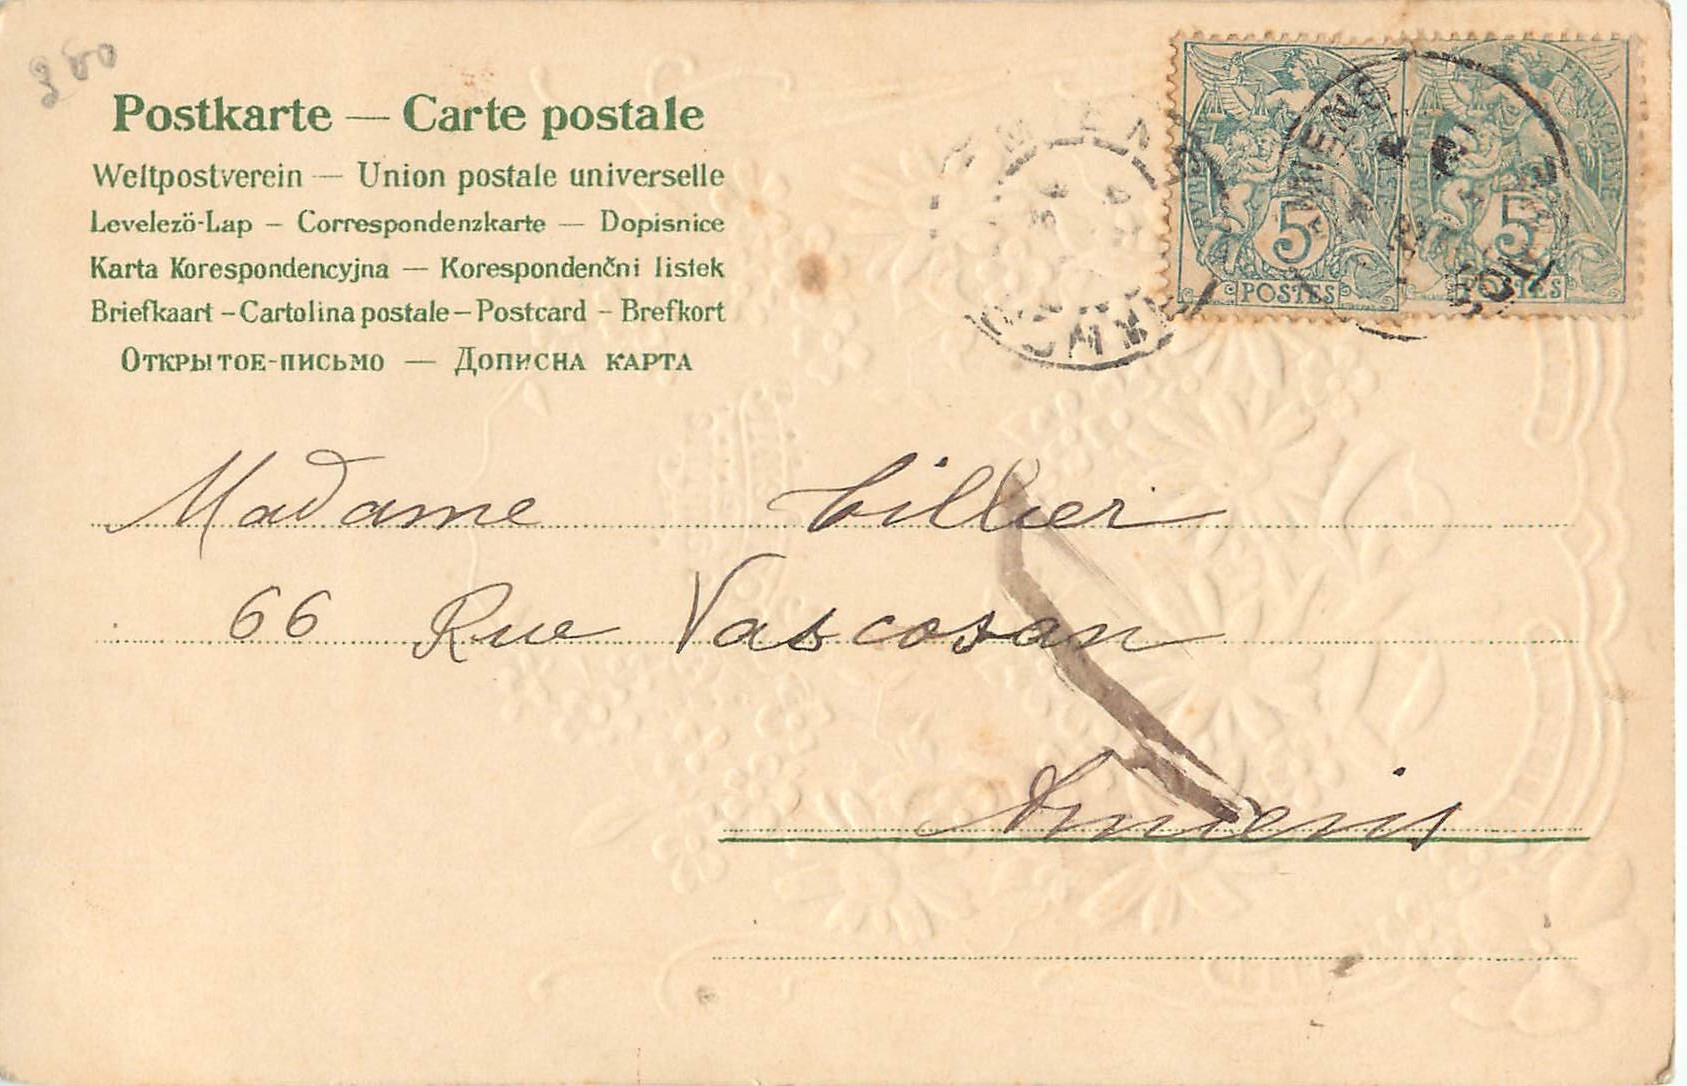 Postkarte — Carte postale
Weltpostverein — Union postale universelle
Levelezö-Lap — Correspondenzkarte — Dopisnice
Karta Korespondencyjna — Korespondenčni listek
Briefkaart – Cartolina postale – Postcard – Brefkort
Открытое-письмо — Дописна карта
AMIENS
AMIENS
5 5
POSTES POSTES
SOMME
Madame Tillier
66 Rue Vascosan
Amiens